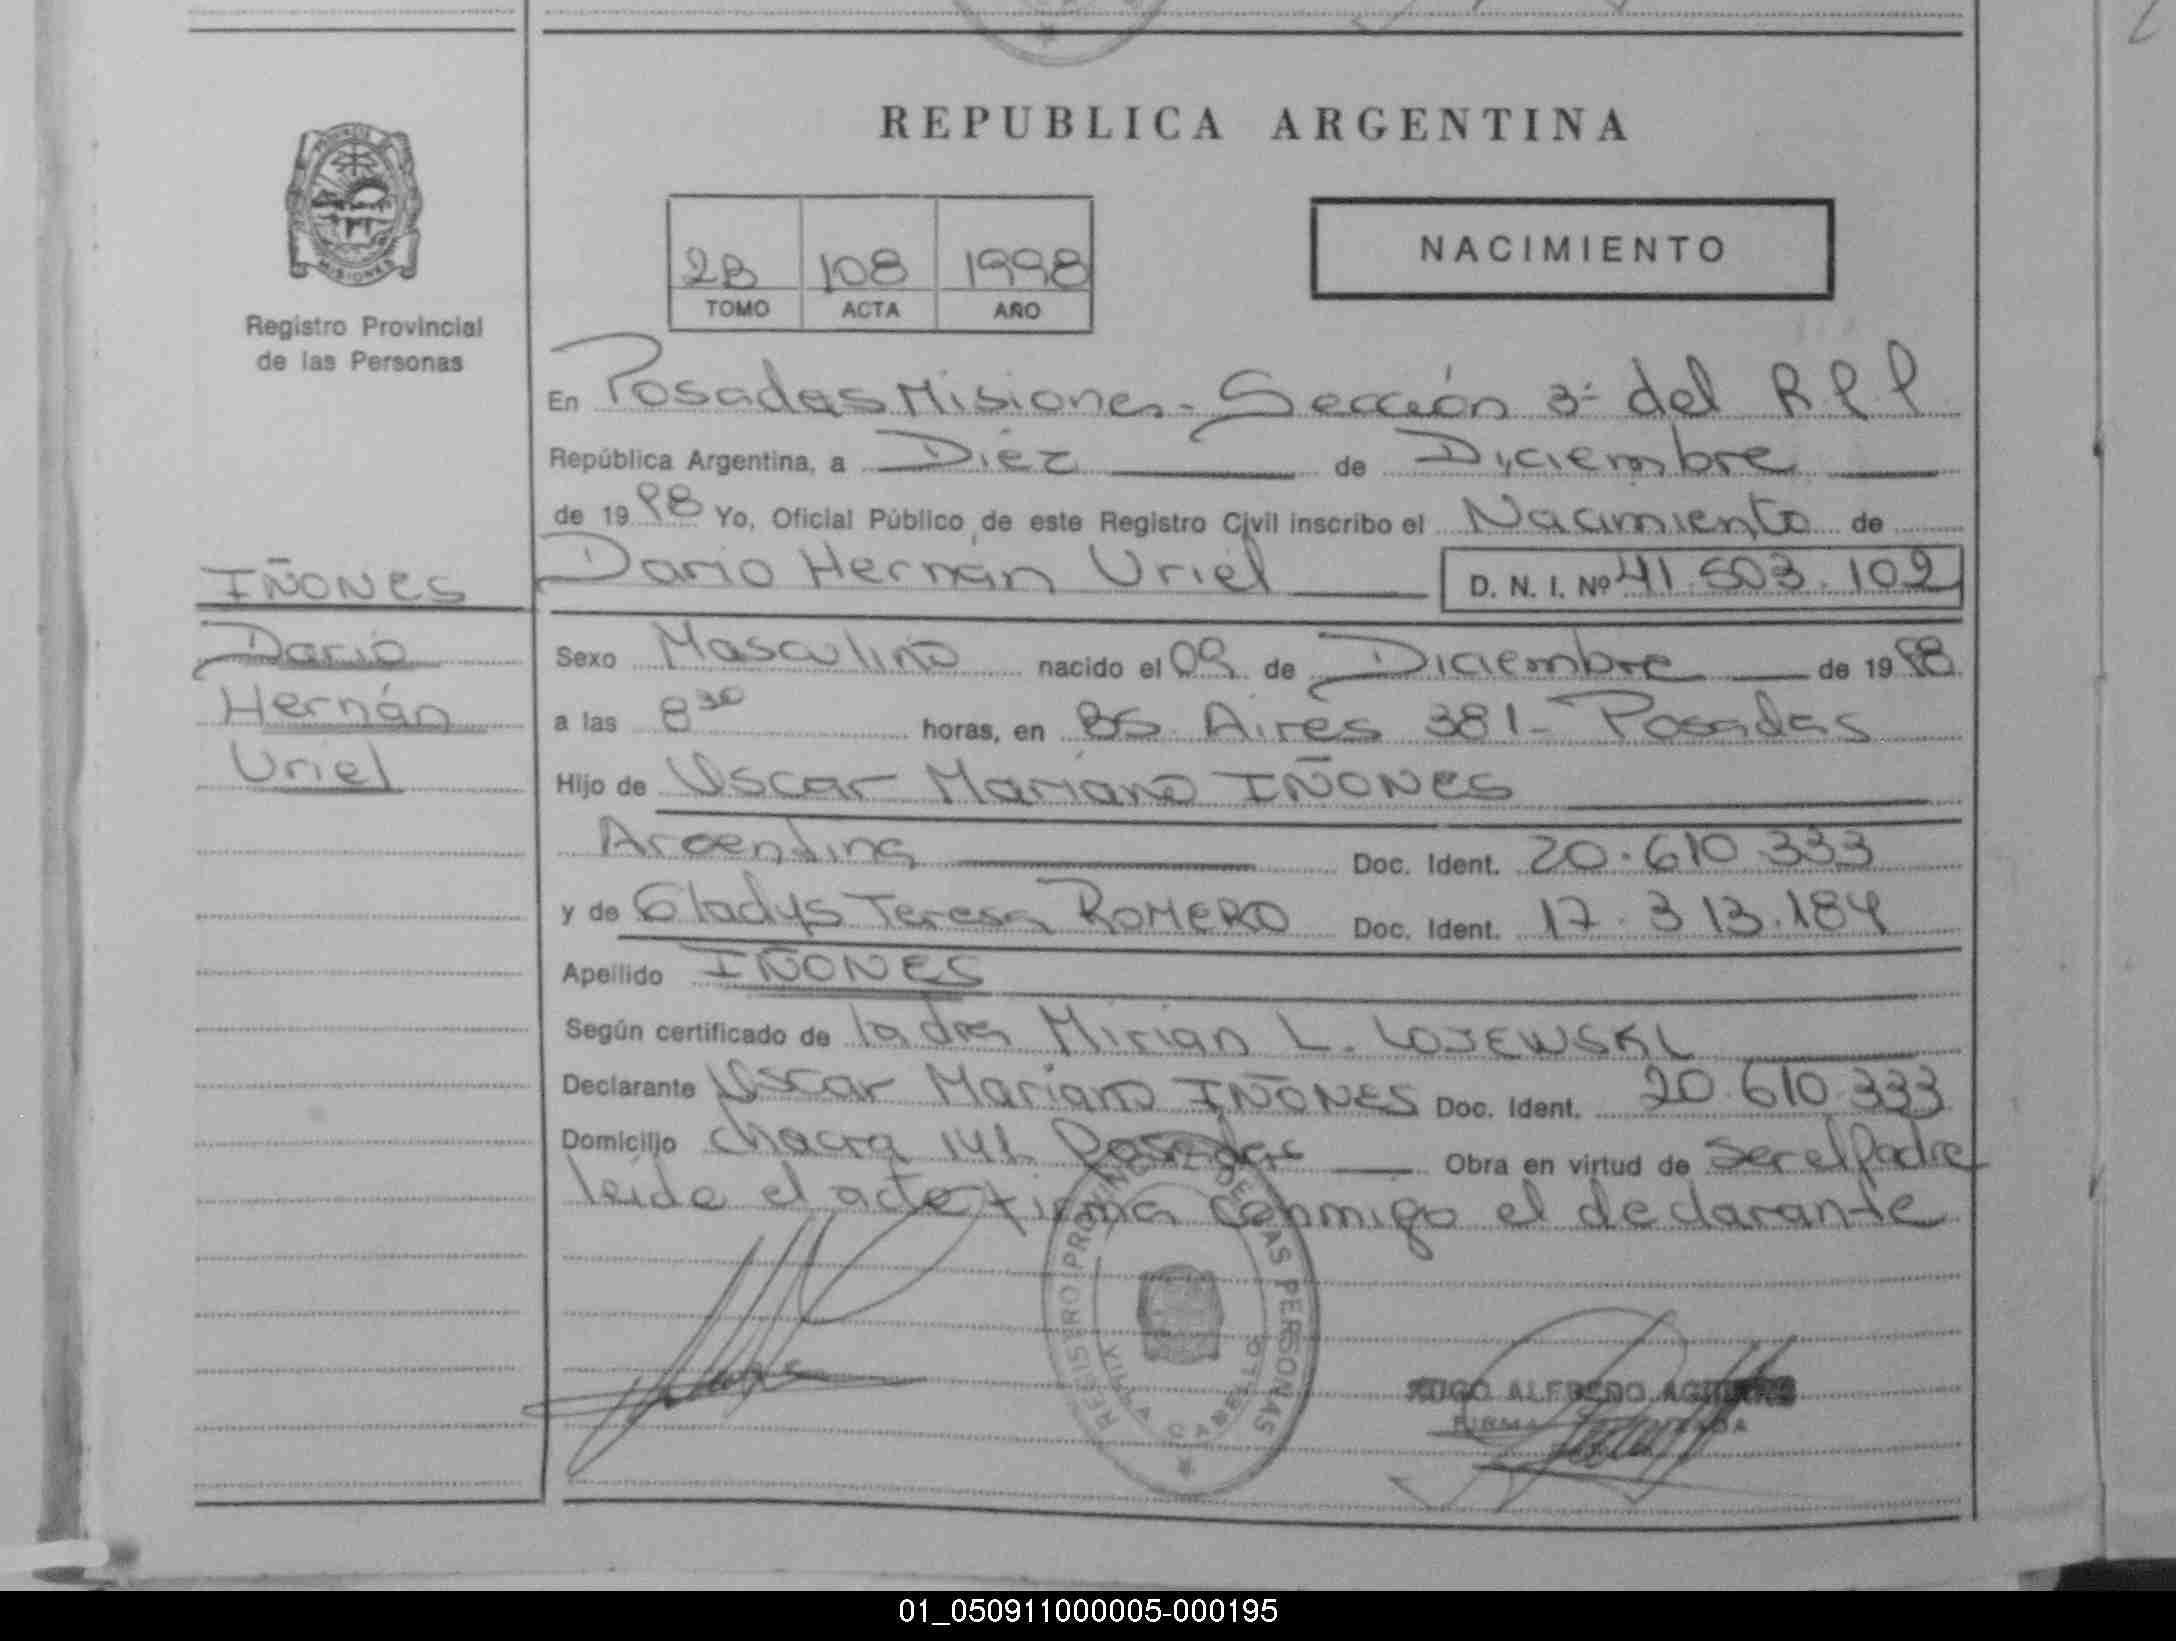 REPUBLICA ARGENTINA
PROVINCIA
MISIONES
Registro Provincial
de las Personas
2B 108 1998
TOMO ACTA AÑO
NACIMIENTO
En Posadas Misiones - Sección 3ª del R P P
República Argentina, a Diez de Diciembre
de 1998 Yo, Oficial Público de este Registro Civil inscribo el Nacimiento de
IÑONES
Dario Hernán Uriel D. N. I. Nº 41.503.102
Dario
Hernán
Uriel
Sexo Masculino nacido el 09 de Diciembre de 1998
a las 8 30 horas, en BS Aires 381 - Posadas
Hijo de Oscar Mariano IÑONES
Argentina Doc. Ident. 20.610.333
y de Gladys Teresa ROMERO Doc. Ident. 17.313.184
Apellido IÑONES
Según certificado de la dra Mirian L. LOJEWSKI
Declarante Oscar Mariano IÑONES Doc. Ident. 20.610.333
Domicilio chacra 141 Posadas Obra en virtud de ser el padre
leida el acta firma conmigo el declarante
REGISTRO PROVINCIAL DE LAS PERSONAS
VILLA CABELLO
HUGO ALFREDO
FIRMA
01_050911000005-000195